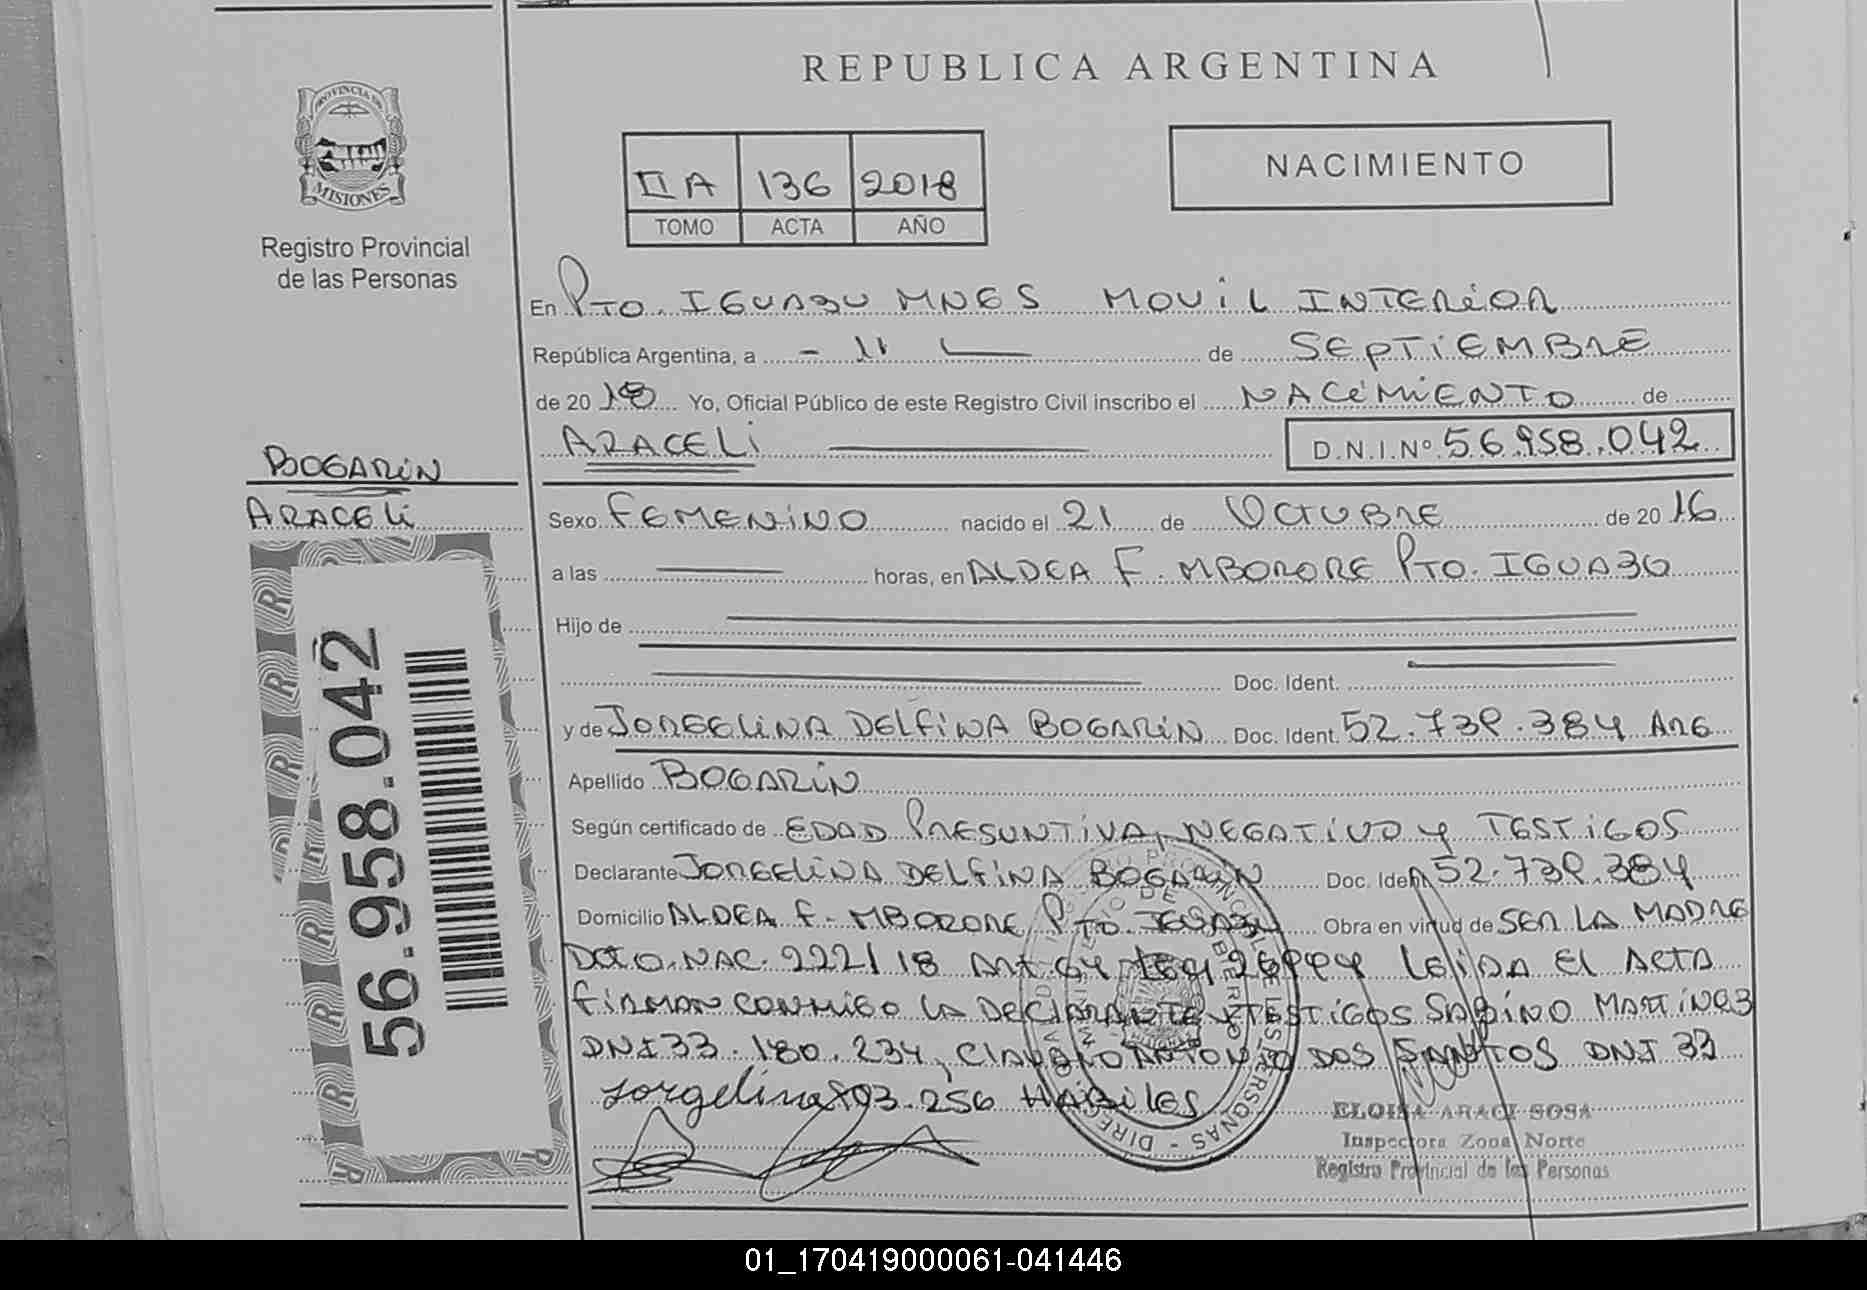 REPUBLICA ARGENTINA
PROVINCIA DE
MISIONES
Registro Provincial
de las Personas
II A 136 2018
TOMO ACTA AÑO
NACIMIENTO
En Pto. IGUAZU MNES MOVIL INTERIOR
República Argentina, a - 11 de SEPTIEMBRE
de 20 18 Yo, Oficial Público de este Registro Civil inscribo el NACIMIENTO de
ARACELI D.N.I.Nº 56.958.042
BOGARIN
ARACELI
Sexo FEMENINO nacido el 21 de OCTUBRE de 20 16
a las horas, en ALDEA F. MBORORE Pto. IGUAZU
Hijo de
Doc. Ident.
y de JORGELINA DELFINA BOGARIN Doc. Ident. 52.739.384 ARG
Apellido BOGARIN
Según certificado de EDAD PRESUNTIVA, NEGATIVO y TESTIGOS
Declarante JORGELINA DELFINA BOGARIN Doc. Ident 52.739.384
Domicilio ALDEA F. MBORORE Pto. IGUAZU Obra en virtud de SER LA MADRE
DCTO. NAC. 222/18 Art 64 Ley 26994 LEIDA EL ACTA
FIRMAN CONMIGO LA DECLARANTE y TESTIGOS SABINO MARTINEZ
DNI 33.180.234, CLAUDIO ANTONIO DOS SANTOS DNI 33
Jorgelina 803.256 HABILES
ELOISA ARACI SOSA
Inspectora Zona Norte
Registro Provincial de las Personas
56.958.042
01_170419000061-041446